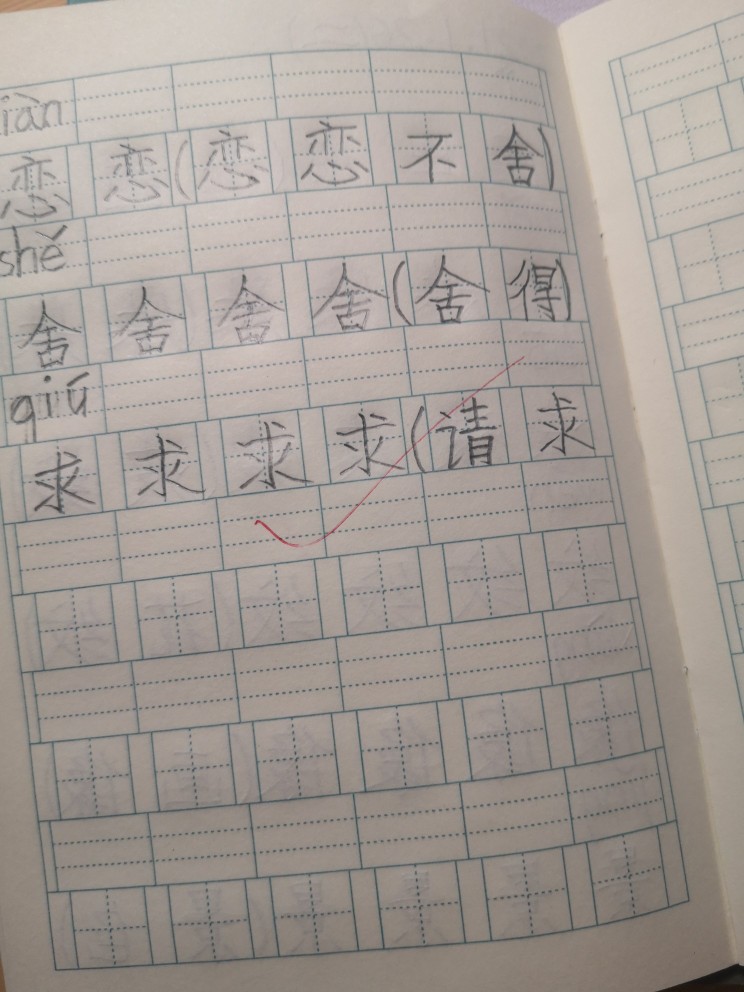 iàn
恋 恋(恋 恋 不 舍)
shě
舍 舍 舍 舍(舍 得)
qiú
求 求 求 求(请 求